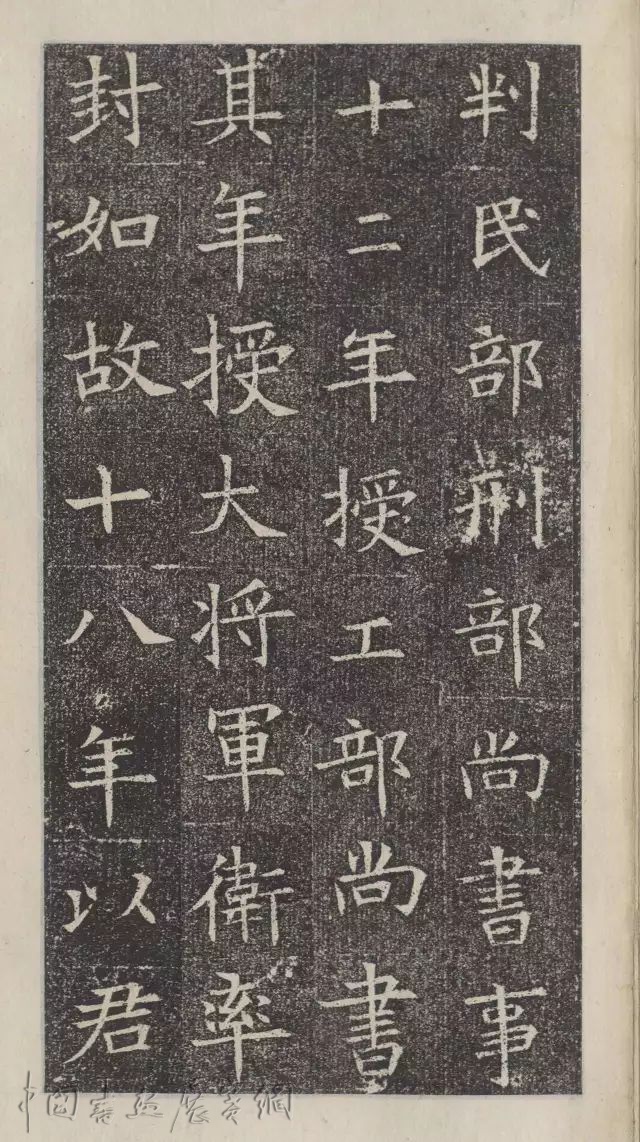 判民部刑部尚書事
十二年授工部尚書
其年授大将軍衛率
封如故十八年以君
中国書法展賽網